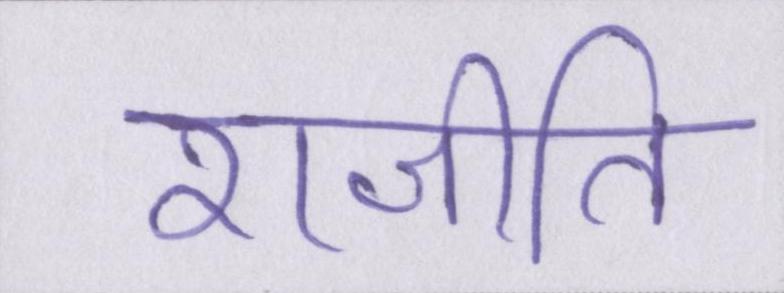 राजीति